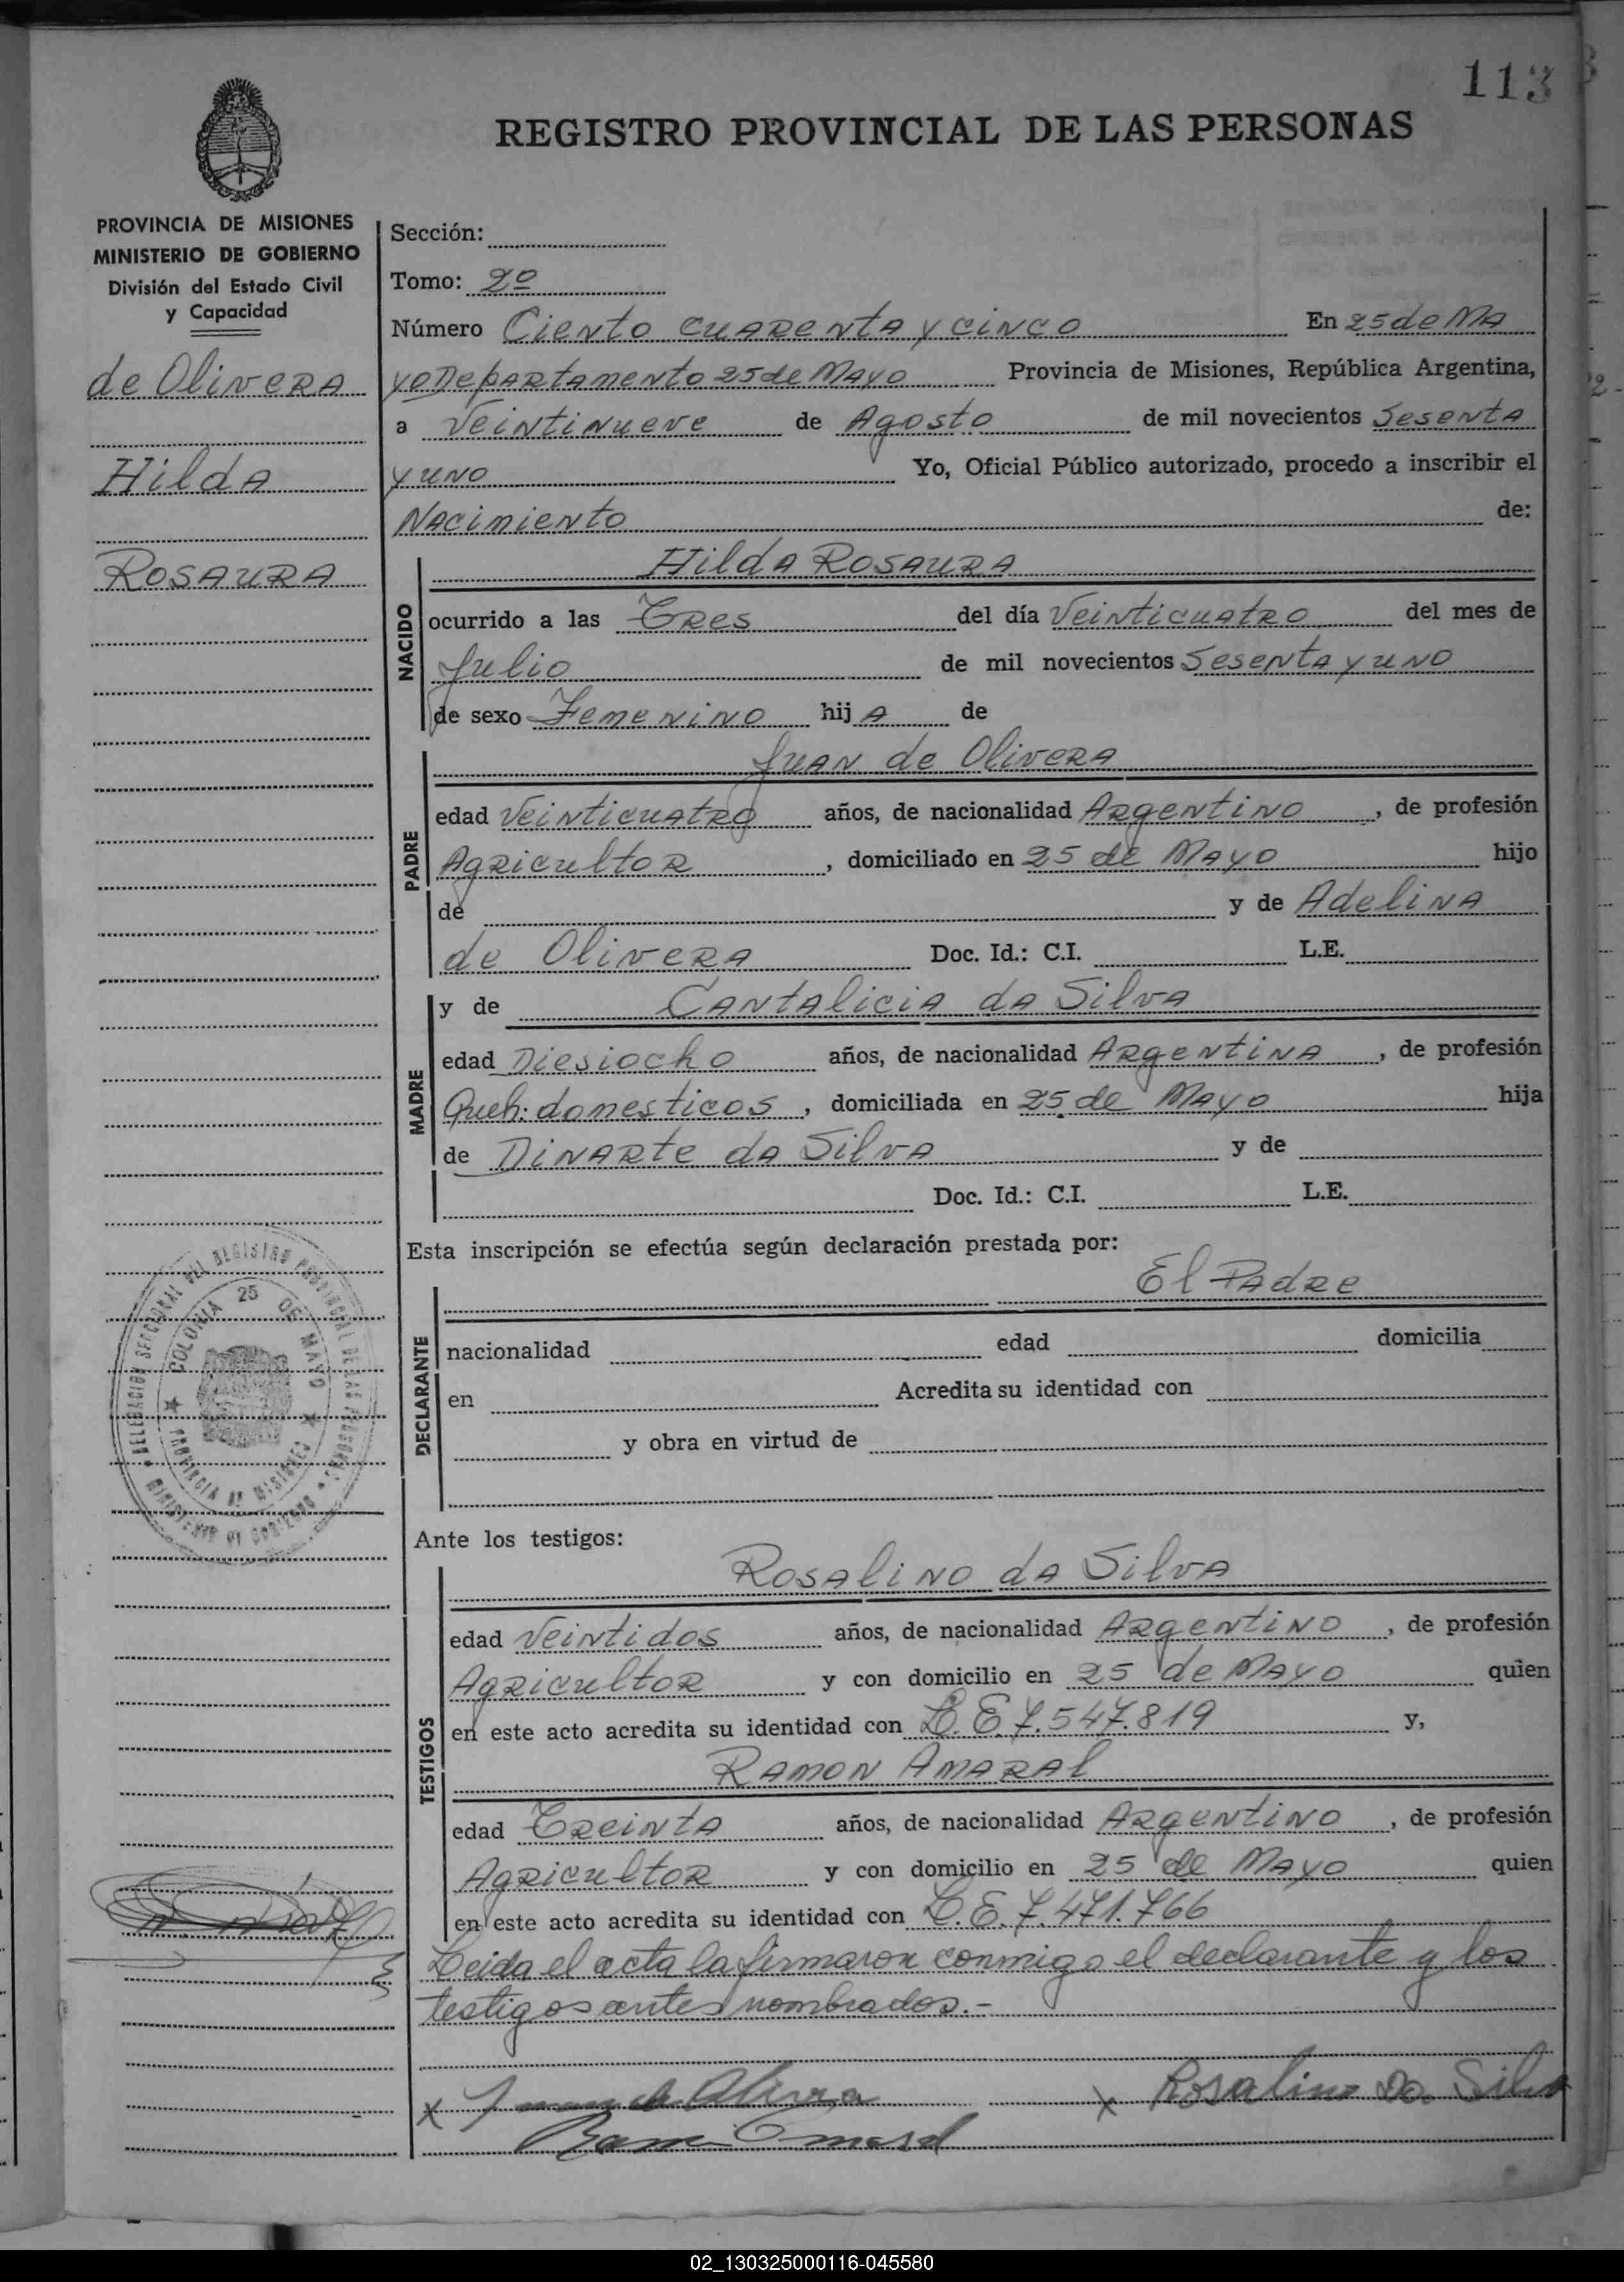 113
REGISTRO PROVINCIAL DE LAS PERSONAS
PROVINCIA DE MISIONES
MINISTERIO DE GOBIERNO
División del Estado Civil
y Capacidad
de Olivera
Hilda
Rosaura
Sección:
Tomo: 2º
Número Ciento cuarenta y cinco En 25 de Ma
yo Departamento 25 de Mayo Provincia de Misiones, República Argentina,
a Veintinueve de Agosto de mil novecientos Sesenta
y uno Yo, Oficial Público autorizado, procedo a inscribir el
Nacimiento de:
NACIDO
Hilda Rosaura
ocurrido a las Tres del día Veinticuatro del mes de
Julio de mil novecientos Sesenta y uno
de sexo Femenino hija de
PADRE
Juan de Olivera
edad Veinticuatro años, de nacionalidad Argentino, de profesión
Agricultor, domiciliado en 25 de Mayo hijo
de y de Adelina
de Olivera Doc. Id.: C.I. L.E.
MADRE
y de Cantalicia da Silva
edad Diesiocho años, de nacionalidad Argentina, de profesión
Queh: domesticos, domiciliada en 25 de Mayo hija
de Dinarte da Silva y de
Doc. Id.: C.I. L.E.
Esta inscripción se efectúa según declaración prestada por:
DECLARANTE
El Padre
nacionalidad edad domicilia
en Acredita su identidad con
y obra en virtud de
DELEGACION SECCIONAL DEL REGISTRO PROVINCIAL DE LAS PERSONAS
COLONIA 25 DE MAYO
PROVINCIA DE MISIONES
MINISTERIO DE GOBIERNO
Ante los testigos:
TESTIGOS
Rosalino da Silva
edad Veintidos años, de nacionalidad Argentino, de profesión
Agricultor y con domicilio en 25 de Mayo quien
en este acto acredita su identidad con L.E 7.547.819 y,
Ramon Amaral
edad Treinta años, de nacionalidad Argentino, de profesión
Agricultor y con domicilio en 25 de Mayo quien
en este acto acredita su identidad con L.E. 7.471.766
Leida el acta la firmaron conmigo el declarante y los
testigos antes nombrados.-
x Juan de Olivera x Rosalino Da Silva
Ramon Amaral
02_130325000116-045580